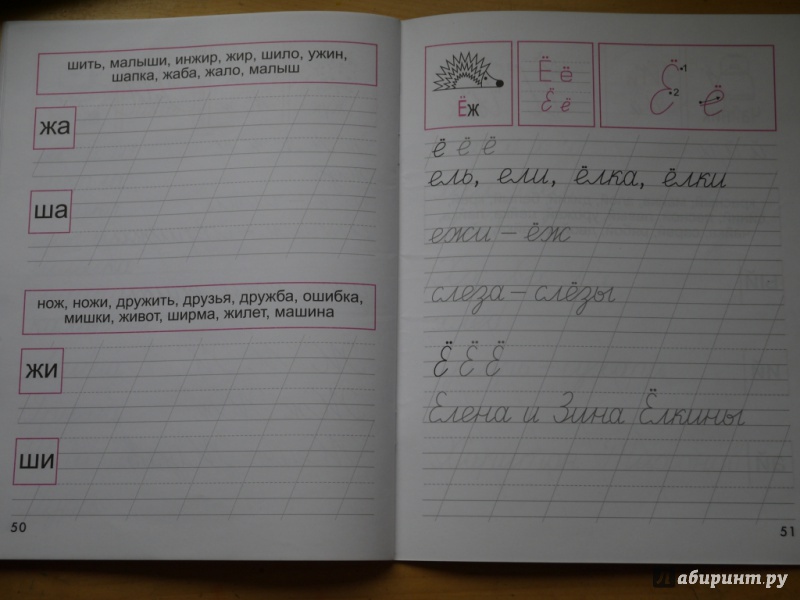 шить, малыши, инжир, жир, шило, ужин,
шапка, жаба, жало, малыш
жа
ша
нож, ножи, дружить, друзья, дружба, ошибка,
мишки, живот, ширма, жилет, машина
жи
ши
50
Ёж
Ё ё
Ё ё
Ё 1
2 ё
ё ё ё
ель, ели, ёлка, ёлки
ежи – ёж
слеза – слёзы
Ё Ё Ё
Елена и Зина Ёлкины
51
Лабиринт.ру